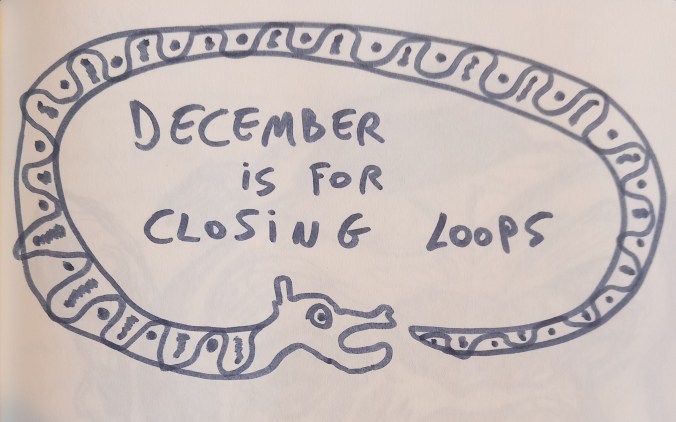 DECEMBER
iS FOR
CLOSiNG LOOPS